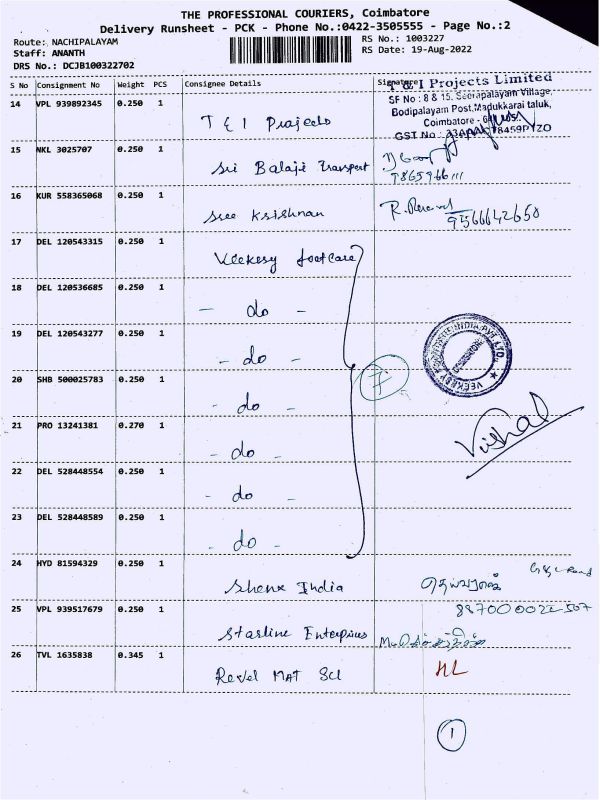 THE PROFESSIONAL COURIERS, Coimbatore
Delivery Runsheet - PCK - Phone No.:0422-3505555 - Page No.:2
Route: NACHIPALAYAM RS No.: 1003227
Staff: ANANTH RS Date: 19-Aug-2022
DRS No.: DCJB100322702
S No Consignment No Weight PCS Consignee Details Signature
T & I Projects Limited
SF No : 8 & 15, Seerapalayam Village,
Bodipalayam Post, Madukkarai taluk,
Coimbatore -
GST No :
14 VPL 939892345 0.250 1 T & I Projects
15 NKL 3025707 0.250 1 Sri Balaji Transport
16 KUR 558365068 0.250 1 Sree Krishnan R.
9566642650
17 DEL 120543315 0.250 1 Veekesy footcare
18 DEL 120536685 0.250 1 - do -
19 DEL 120543277 0.250 1 - do -
7
20 SHB 500025783 0.250 1 - do -
21 PRO 13241381 0.270 1 - do -
Vishal
22 DEL 528448554 0.250 1 - do -
23 DEL 528448589 0.250 1 - do -
24 HYD 81594329 0.250 1 India
25 VPL 939517679 0.250 1 Starline Enterprises
26 TVL 1635838 0.345 1 MAT
1